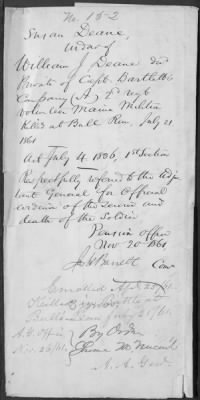 No. 152
Susan Deane,
widow of
William J Deane decd
Private of Capt. Bartletts
Company (A) 2d regt
Volunteer Maine Militia
Killed at Bull Run, July 21
1861
Act July 4. 1836, 1st Section
Respectfully referred to the Adju
tant General for Official
evidence of the service and
death of the Soldier
Pension office
Nov 20 1861
J H Barrett Com
Enrolled Apl 25/61.
Killed in battle at
Bulls Run July 21/61.
A. G. Office
Nov. 26/61.
By Order
Thomas M. Vincent
A. A. Genl.